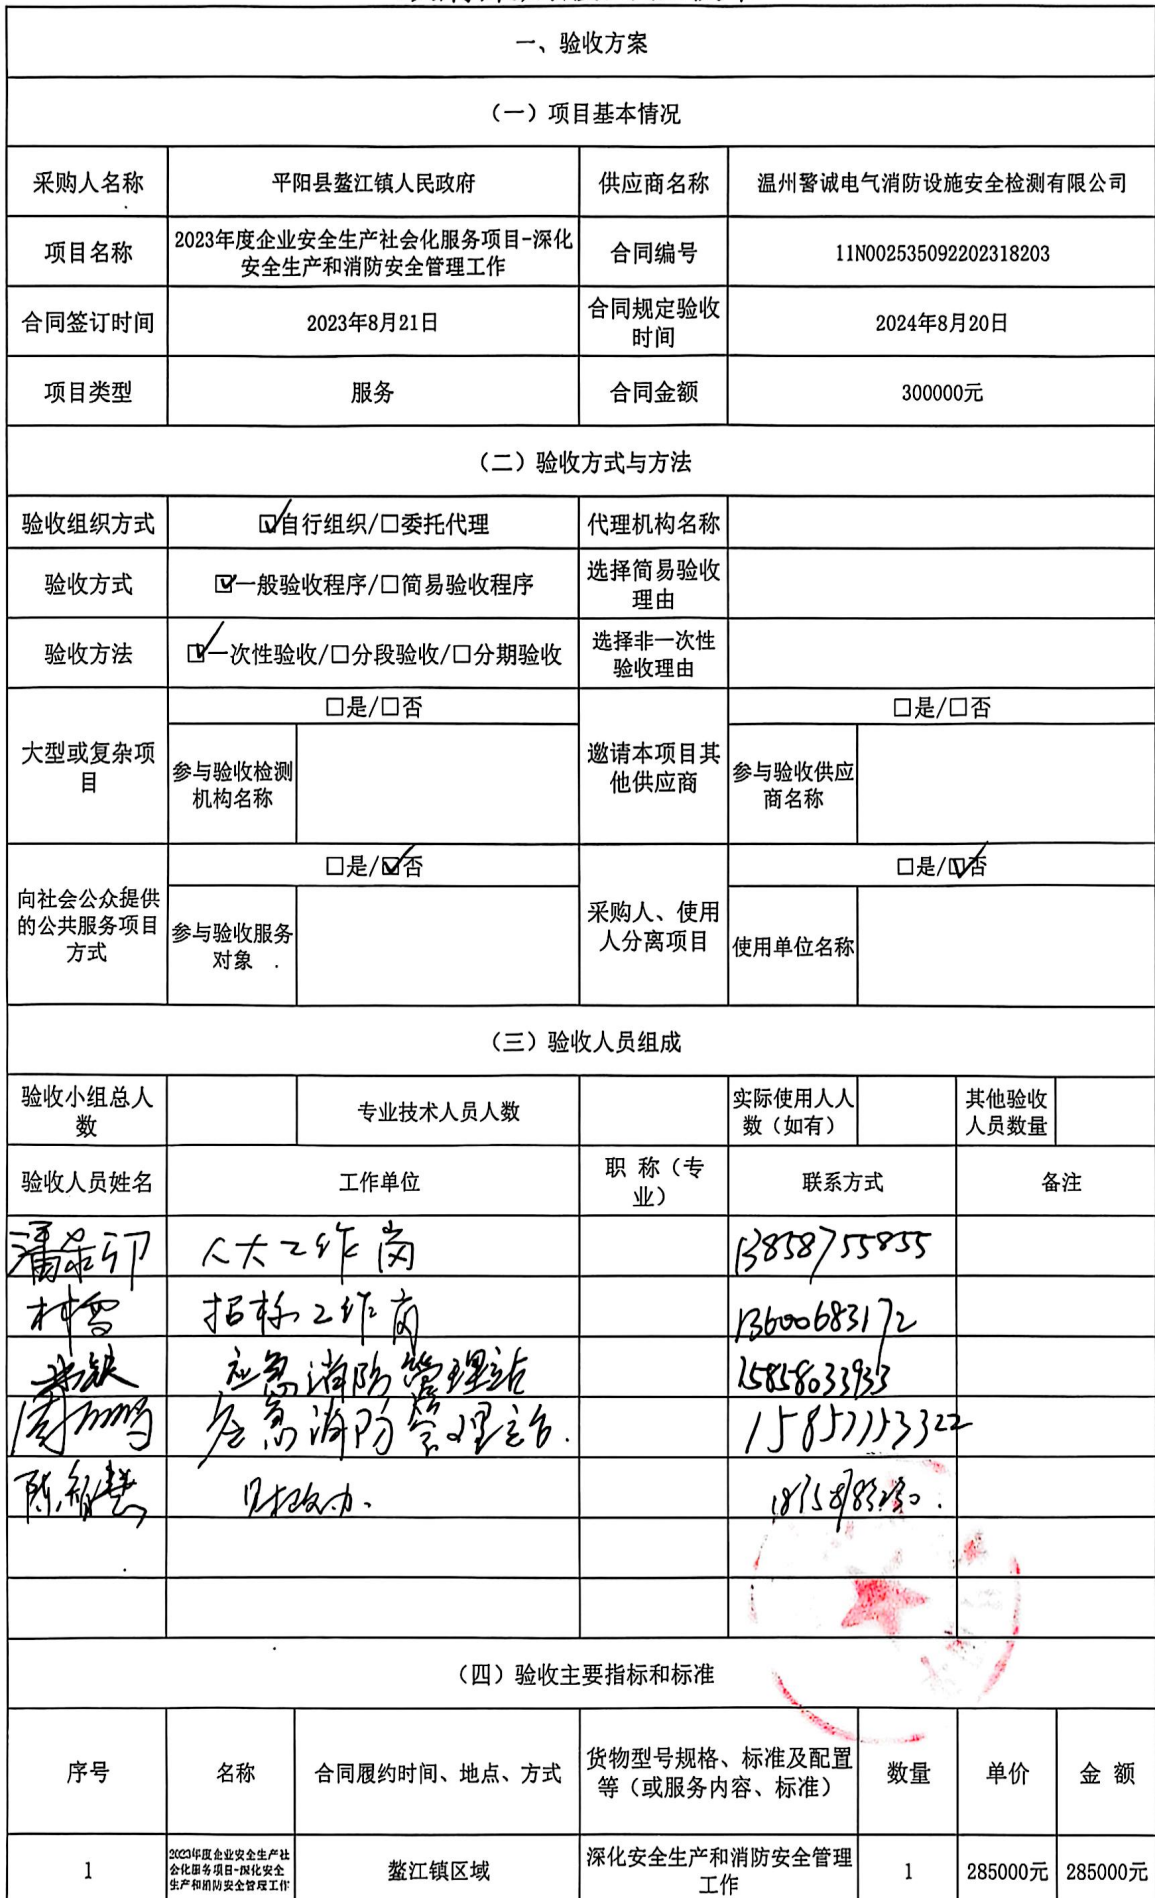 一、验收方案
（一）项目基本情况
采购人名称 平阳县鳌江镇人民政府 供应商名称 温州警诚电气消防设施安全检测有限公司
项目名称 2023年度企业安全生产社会化服务项目-深化安全生产和消防安全管理工作 合同编号 11N002535092202318203
合同签订时间 2023年8月21日 合同规定验收时间 2024年8月20日
项目类型 服务 合同金额 300000元
（二）验收方式与方法
验收组织方式 ☑自行组织/□委托代理 代理机构名称
验收方式 ☑一般验收程序/□简易验收程序 选择简易验收理由
验收方法 ☑一次性验收/□分段验收/□分期验收 选择非一次性验收理由
大型或复杂项目 □是/□否 邀请本项目其他供应商 □是/□否
参与验收检测机构名称 参与验收供应商名称
向社会公众提供的公共服务项目方式 □是/☑否 采购人、使用人分离项目 □是/☑否
参与验收服务对象 使用单位名称
（三）验收人员组成
验收小组总人数 专业技术人员人数 实际使用人人数（如有） 其他验收人员数量
验收人员姓名 工作单位 职 称（专业） 联系方式 备注
人大工作岗 13858755855
林雪 招标工作岗 13600683172
应急消防管理站 15858033933
应急消防管理站.
陈智慧 财政办.
（四）验收主要指标和标准
序号 名称 合同履约时间、地点、方式 货物型号规格、标准及配置等（或服务内容、标准） 数量 单价 金 额
1 2023年度企业安全生产社会化服务项目-深化安全生产和消防安全管理工作 鳌江镇区域 深化安全生产和消防安全管理工作 1 285000元 285000元